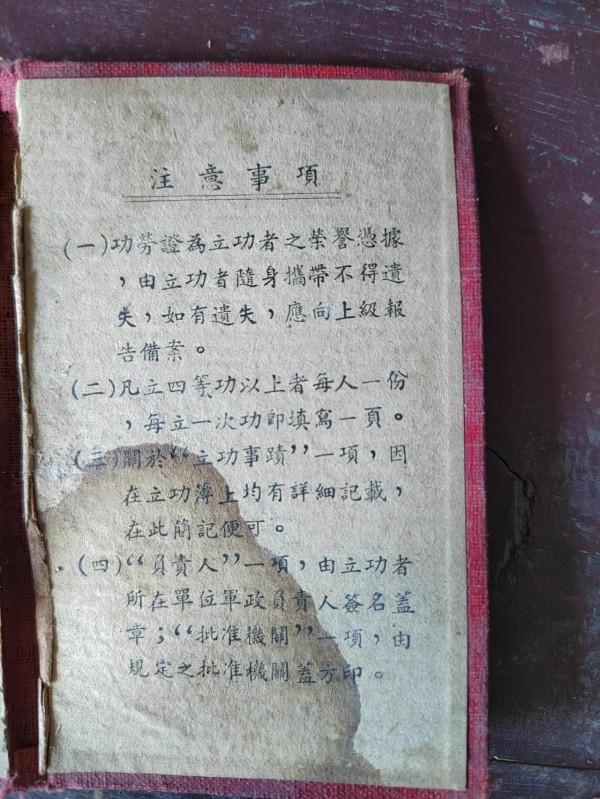 注意事項
(一)功勞證為立功者之榮譽憑據
，由立功者隨身攜帶不得遺
失，如有遺失，應向上級報
告備案。
(二)凡立四等功以上者每人一份
，每立一次功即填寫一頁。
(三)關於“立功事蹟”一項，因
在立功簿上均有詳細記載，
在此簡記便可。
(四)“負責人”一項，由立功者
所在單位軍政負責人簽名蓋
章；“批准機關”一項，由
規定之批准機關蓋方印。